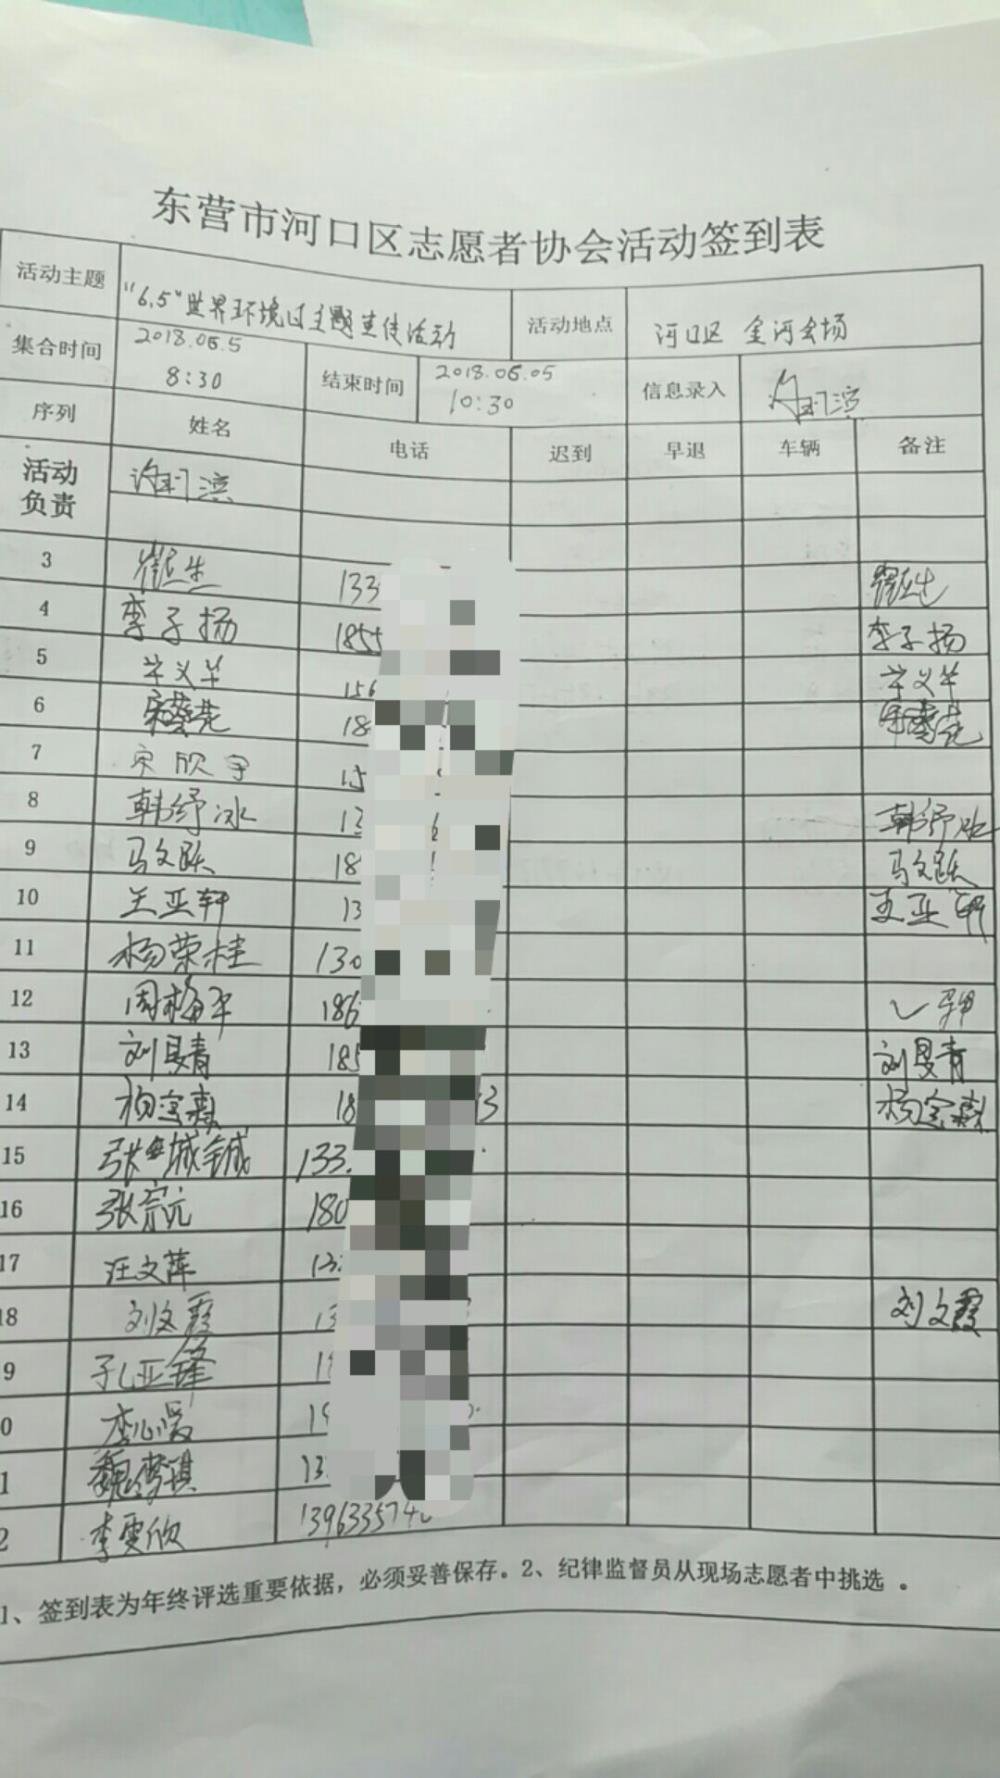 东营市河口区志愿者协会活动签到表
活动主题 "6.5"世界环境日主题宣传活动 活动地点 河口区 金河会场
集合时间 2018.06.5 8:30 结束时间 2018.06.05 10:30 信息录入
序列 姓名 电话 迟到 早退 车辆 备注
活动负责
3 133
4 李子扬 1855 李子扬
5 156
6 18
7 宋欣宇 15
8 韩纾冰 13 韩纾冰
9 马文跃 18 马文跃
10 王亚轩 13 王亚轩
11 杨荣桂 130
12 周梅平 186
13 刘旻青 185 刘旻青
14 18 3
15 133
16 张宗元 180
17 汪文萍 13
18 刘文霞 13 刘文霞
9 孔亚锋
0 李心爱
1 魏梦琪 13
2 李雯欣 139633574
1、签到表为年终评选重要依据，必须妥善保存。2、纪律监督员从现场志愿者中挑选 。